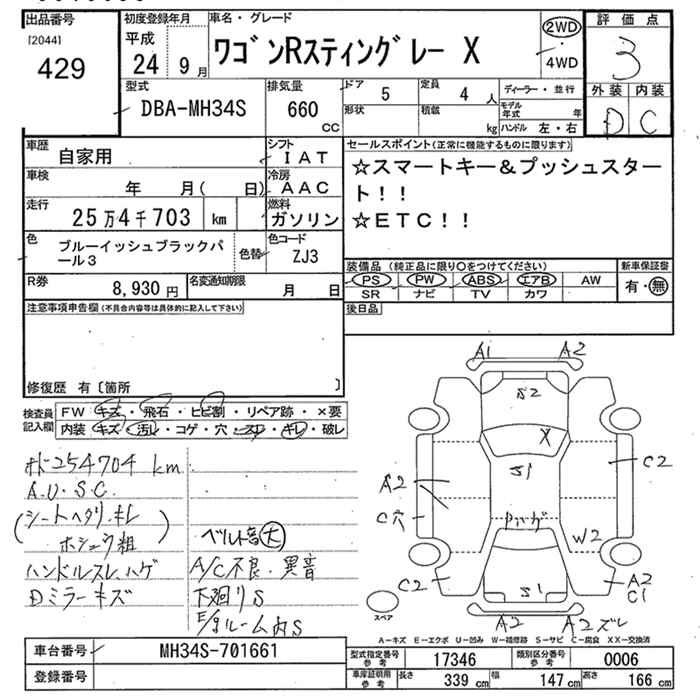 出品番号
[2044]
429
初度登録年月
平成
24 9月
車名・グレード
ワゴンRスティングレー X
2WD
4WD
評価点
3
外装 内装
D C
型式
DBA-MH34S
排気量
660
cc
ドア 5
定員 4 人
形状
積載 kg
ディーラー・並行
モデル年式 年
ハンドル 左・右
車歴
自家用
シフト
IAT
車検
年 月( 日)
冷房
AAC
走行
25万4千703 km
燃料
ガソリン
色
ブルーイッシュブラックパール3
色替
色コード
ZJ3
R券
8,930 円
名変通知期限
月 日
セールスポイント(正常に機能するものに限ります)
☆スマートキー&プッシュスタート!!
☆ETC!!
装備品 (純正品に限り〇をつけてください)
PS PW ABS エアB AW
SR ナビ TV カワ
新車保証書
有・無
後日品
注意事項申告欄(不具合内容等は具体的に記入して下さい)
修復歴 有〔箇所 〕
検査員記入欄
FW キズ・飛石・ヒビ割・リペア跡・×要
内装 キズ・汚レ・コゲ・穴・スレ・キレ・破レ
254704 km
A.U.S.C.
(シートヘタリ.キレ
ホシュウ粗)
ハンドルスレ.ハゲ
Dミラーキズ
ベルト音大
A/C不良.異音
下廻りS
E/gルーム内S
A1 A2
S2
X
S1
A2
C穴
C2
C2
ハゲ
W2
S1
A2
C1
A2
A2ズレ
スペア
A-キズ E-エクボ U-凹み W-補修跡 S-サビ C-腐食 XX-交換済
車台番号
MH34S-701661
登録番号
型式指定番号 参考
17346
類別区分番号 参考
0006
車庫証明用 参考
長さ 339 cm
幅 147 cm
高さ 166 cm